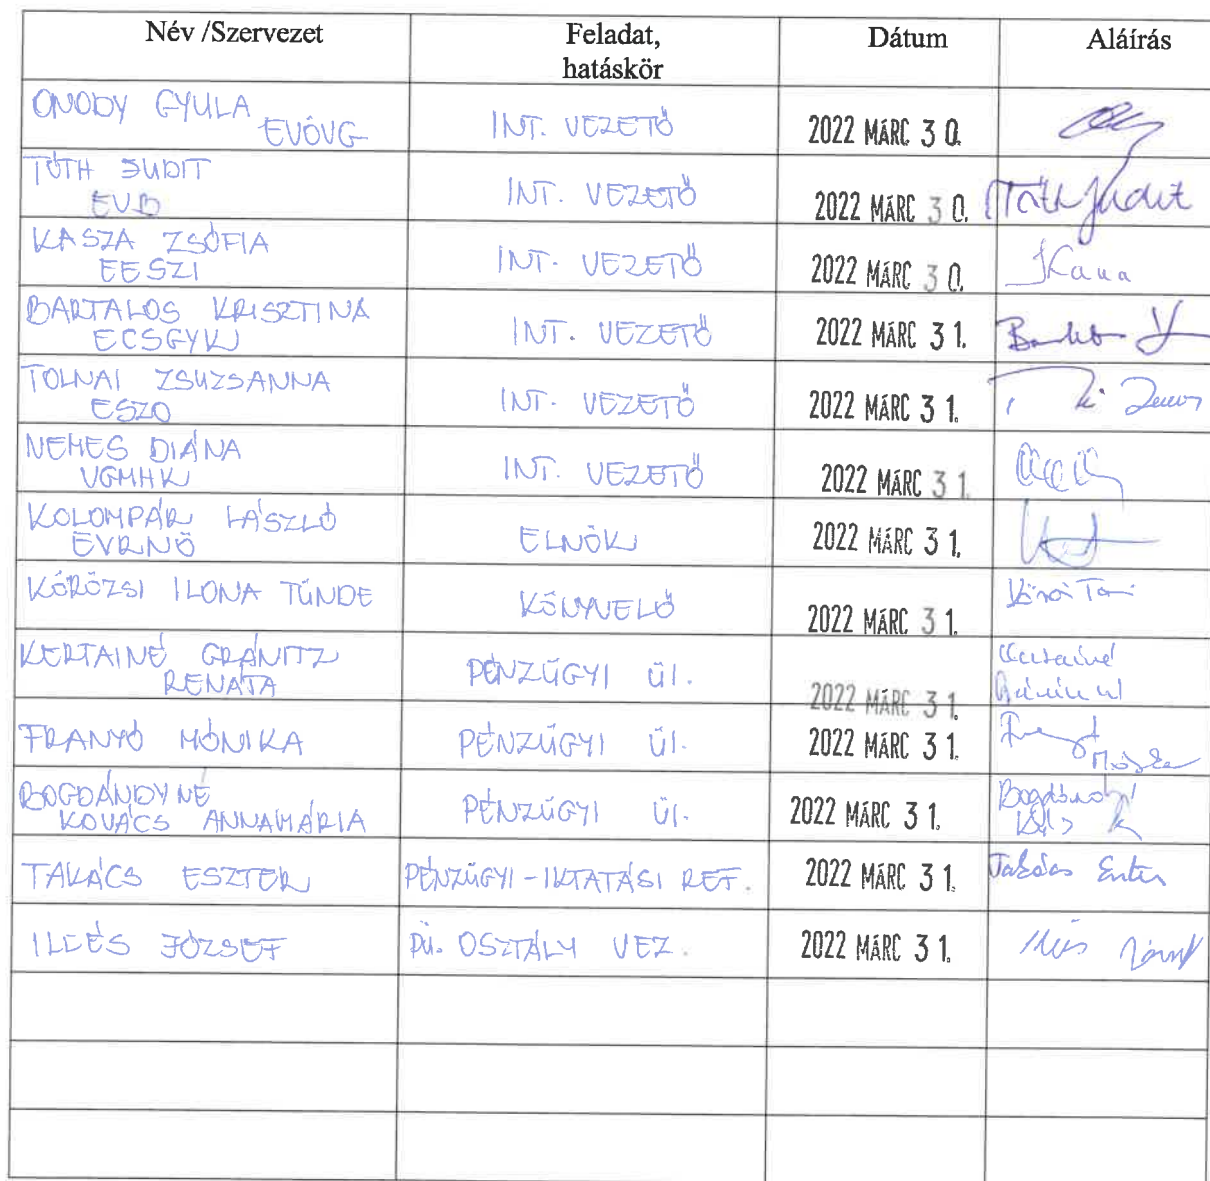 Név /Szervezet Feladat, hatáskör Dátum Aláírás
ONODY GYULA
EVÓVG INT. VEZETŐ 2022 MÁRC 30.
TÓTH JUDIT
EVB INT. VEZETŐ 2022 MÁRC 30. Tóth Judit
KASZA ZSÓFIA
EESZI INT. VEZETŐ 2022 MÁRC 30.
BARTALOS KRISZTINA
ECSGYK INT. VEZETŐ 2022 MÁRC 31.
TOLNAI ZSUZSANNA
ESZO INT. VEZETŐ 2022 MÁRC 31.
NEMES DIÁNA
VGMHK INT. VEZETŐ 2022 MÁRC 31.
KOLOMPÁR LÁSZLÓ
EVRNÖ ELNÖK 2022 MÁRC 31.
KÖRÖZSI ILONA TÜNDE KÖNYVELŐ 2022 MÁRC 31.
KERTAINÉ GRÁNITZ
RENÁTA PÉNZÜGYI ÜI. 2022 MÁRC 31. Kertainé
FRANYÓ MÓNIKA PÉNZÜGYI ÜI. 2022 MÁRC 31.
BOGDÁNDYNÉ
KOVÁCS ANNAMÁRIA PÉNZÜGYI ÜI. 2022 MÁRC 31.
TAKÁCS ESZTER PÉNZÜGYI-IKTATÁSI REF. 2022 MÁRC 31. Takács Eszter
ILLÉS JÓZSEF PÜ. OSZTÁLY VEZ. 2022 MÁRC 31. Illés József